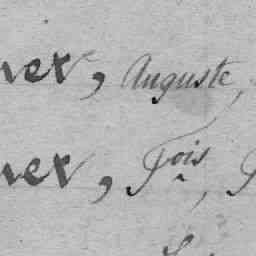 ner, Auguste,
ner, Fois,